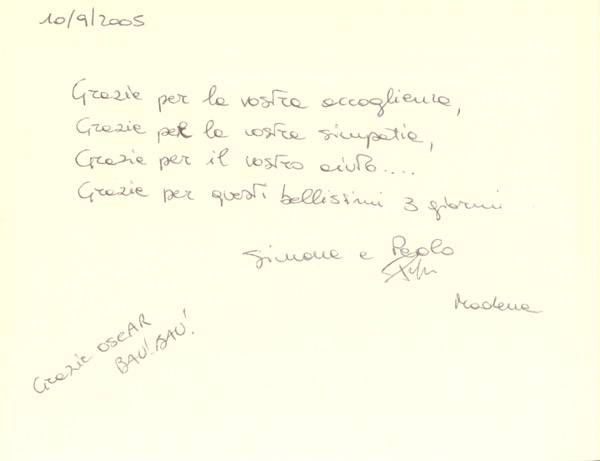 10/9/2005
Grazie per la vostra accoglienza,
Grazie per la vostra simpatia,
Grazie per il vostro aiuto....
Grazie per questi bellissimi 3 giorni
Simona e Paolo
Modena
Grazie OSCAR
BAU! BAU!